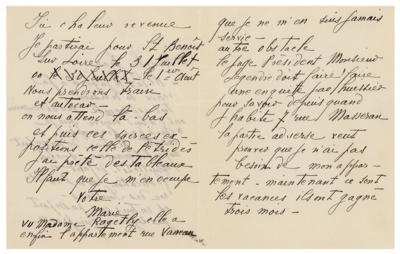 chaleur revenue
Je partirai pour St Benoit
sur Loire le 31 Juillet
ou le 1er Août
Nous prendrons train
et autocar -
on nous attend là-bas
et puis ces
positions celle de
j'ai prêté des tableaux
Il faut que je m'en occupe
votre
Marie
vu Madame elle a
enfin l'appartement rue Vaneau
que je ne m'en suis jamais
servie -
autre obstacle
le juge Président Monsieur
doit faire faire
une enquête par huissier
pour savoir depuis quand
J'habite 7 rue Masseran
la partie adverse veut
prouver que je n'ai pas
besoin de mon appar-
tement - maintenant ce sont
les vacances ils ont gagné
trois mois -